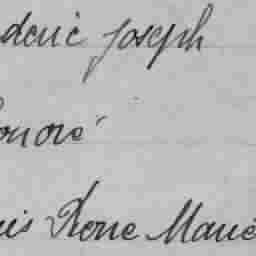 deric Joseph
onoré
uis Rene Marie